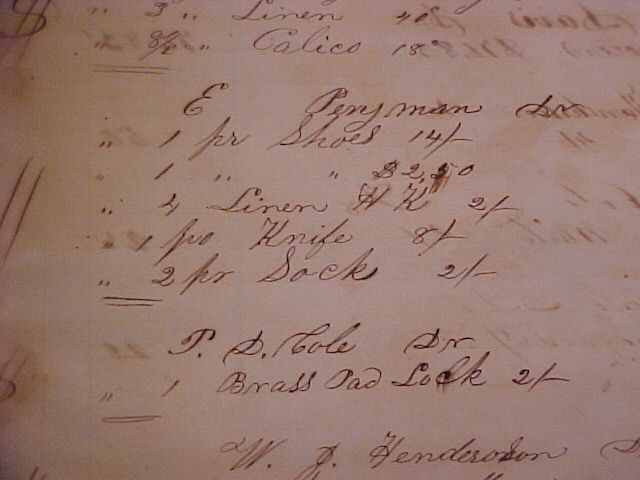 " 3 " Linen 40
" 8½ " Calico 18
E Penyman Dr
" 1 pr Shoes 14/-
" 1 " " $2,50
" 4 Linen H K 2/-
" 1 po Knife 8/-
" 2 pr Sock 2/-
P. D. Cole Dr
" 1 Brass Pad Lock 2/-
W. J. Henderson D